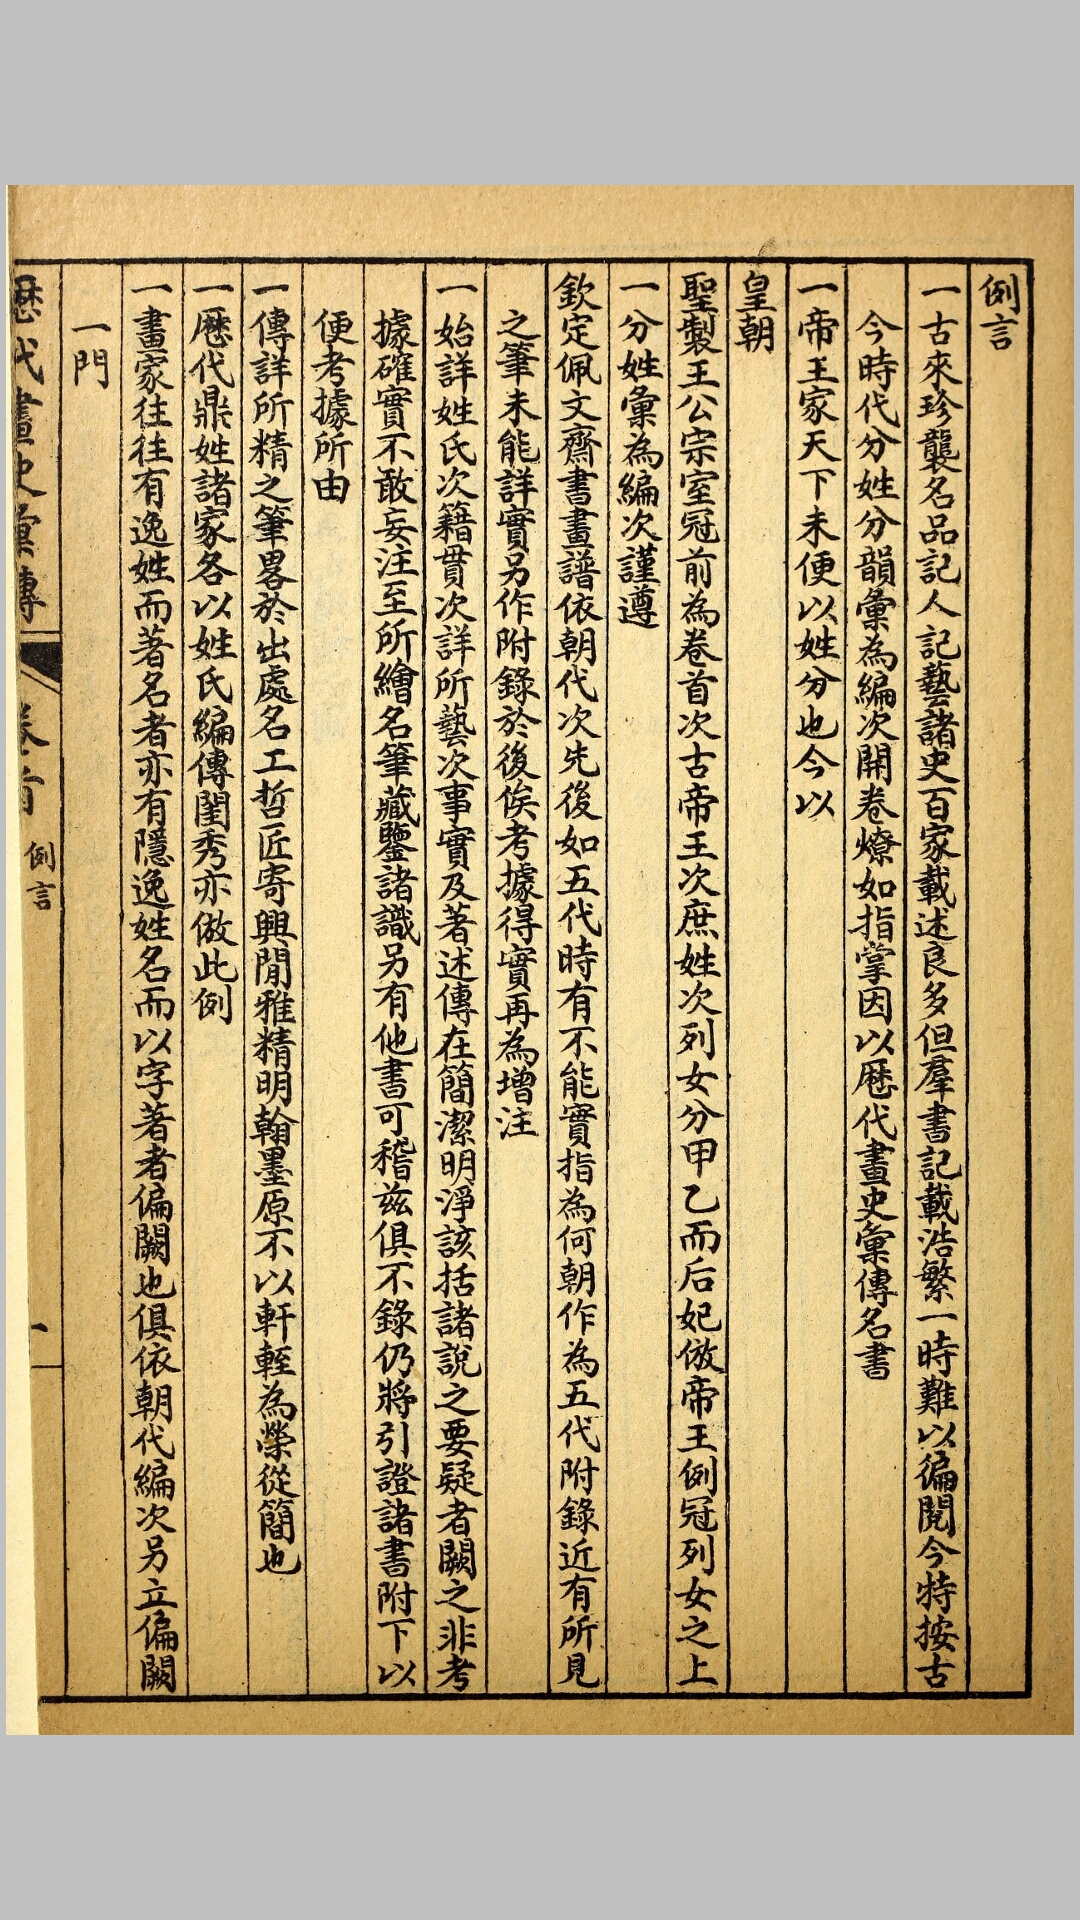 例言
一古來珍襲名品記人記藝諸史百家載述良多但羣書記載浩繁一時難以徧閱今特按古
今時代分姓分韻彙為編次開卷燎如指掌因以歷代畫史彙傳名書
一帝王家天下未便以姓分也今以
皇朝
聖製王公宗室冠前為卷首次古帝王次庶姓次列女分甲乙而后妃倣帝王例冠列女之上
一分姓彙為編次謹遵
欽定佩文齋書畫譜依朝代次先後如五代時有不能實指為何朝作為五代附錄近有所見
之筆未能詳實另作附錄於後俟考據得實再為增注
一始詳姓氏次籍貫次詳所藝次事實及著述傳在簡潔明淨該括諸說之要疑者闕之非考
據確實不敢妄注至所繪名筆藏鑒諸識另有他書可稽兹俱不錄仍將引證諸書附下以
便考據所由
一傳詳所精之筆畧於出處名工哲匠寄興閒雅精明翰墨原不以軒輊為榮從簡也
一歷代鼎姓諸家各以姓氏編傳閨秀亦倣此例
一畫家往往有逸姓而著名者亦有隱逸姓名而以字著者偏闕也俱依朝代編次另立偏闕
一門
歷代畫史彙傳 卷首 例言 一